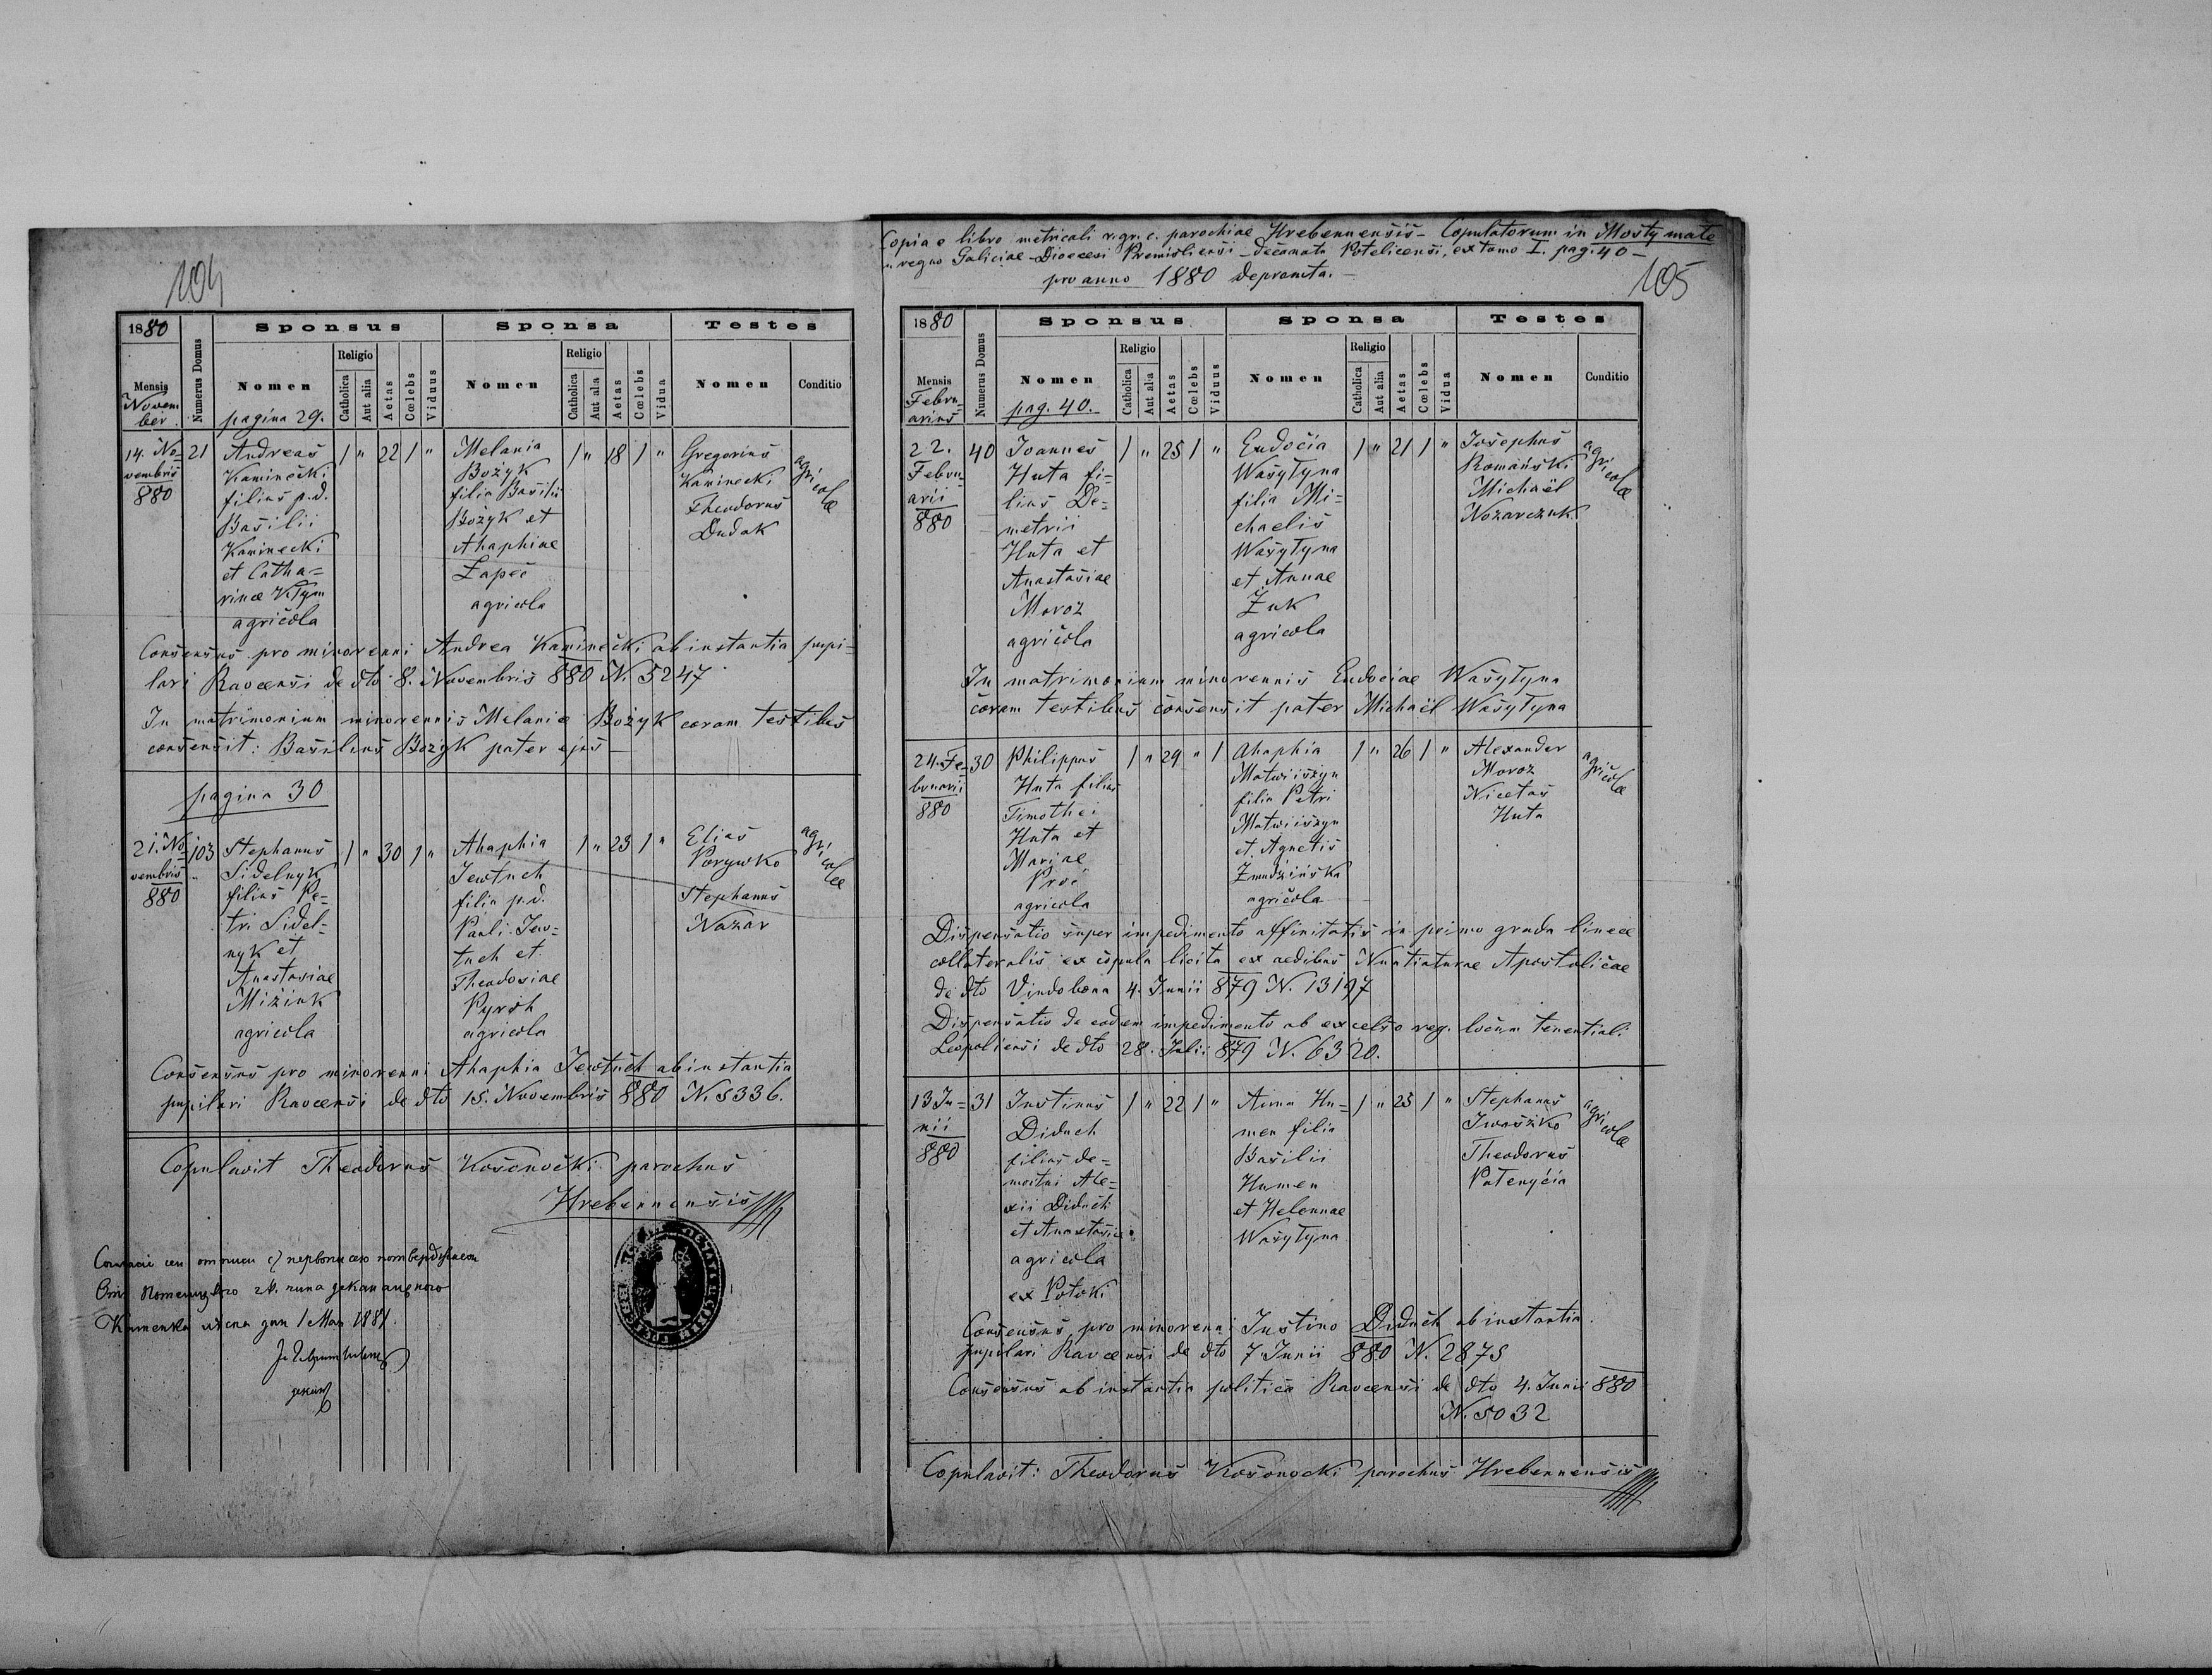 104
1880
Sponsus
Sponsa
Testes
Mensis
Numerus Domus
Nomen
Religio
Catholica
Aut alia
Aetas
Cœlebs
Viduus
Nomen
Religio
Catholica
Aut alia
Aetas
Cœlebs
Vidua
Nomen
Conditio
Novem
ber
pagina 29.
14. No-
vembris
880
21
Andreas
Kaminecki
filius p.d.
Basilii
Kaminecki
et Catha=
rinae
agricola
1 " 22 1 "
Melania
Bożyk
filia Basilii
Bożyk et
Ahaphiae
Łapeć
agricola
1 " 18 1 "
Gregorius
Kaminecki
Theodorus
Dudak
agricolae
Consensus pro minorenni Andrea Kaminecki ab instantia pupi=
lari Ravensi de dto 8. Novembris 880 N. 5247
In matrimonium minorennis Melanie Bożyk coram testibus
consensit: Basilius Bożyk pater ejus
pagina 30
21. No-
vembris
880
103
Stephanus
Sidelnyk
filius Pe=
tri Sidel=
nyk et
Anastasiae
Miziuk
agricola
1 " 30 1 "
Ahaphia
Jewtuch
filia p.d.
Pauli Jew=
tuch et
Theodosiae
Pyroh
agricola
1 " 23 1 "
Elias
Porywko
Stephanus
Nazar
agricolae
Consensus pro minorenni Ahaphia Jewtuch ab instantia
pupilari Ravensi de dto 15. Novembris 880 N. 5336.
Copulavit Theodorus Kosonocki parochus
Hrebennensis
1 1881.
Copia e libro metricali r. gr. c. parochiae Hrebennensis - Copulatorum in Mosty małe
in regno Galiciae - Dioecesi Premisliensi - Decanatu Potelicensi, ex tomo I. pag. 40 -
pro anno 1880 deprompta. -
105
1880
Sponsus
Sponsa
Testes
Mensis
Numerus Domus
Nomen
Religio
Catholica
Aut alia
Aetas
Cœlebs
Viduus
Nomen
Religio
Catholica
Aut alia
Aetas
Cœlebs
Vidua
Nomen
Conditio
Febru=
arius
pag. 40.
22.
Febru=
arii
880
40
Joannes
Huta fi=
lius De=
metrii
Huta et
Anastasiae
Moroz
agricola
1 " 25 1 "
Eudocia
Wasytyna
filia Mi=
chaelis
Wasytyna
et Annae
Żuk
agricola
1 " 21 1 "
Josephus
Romański
Michaël
Nozarczuk
agricolae
In matrimonium minorennis Eudociae Wasytyna
coram testibus consensit pater Michaël Wasytyna
24. Fe-
bruarii
880
30
Philippus
Huta filius
Timothei
Huta et
Mariae
Proć
agricola
1 " 29 " 1
Ahaphia
Matwiiszyn
filia Petri
Matwiiszyn
et Agnetis
Żmudzińska
agricola
1 " 26 1 "
Alexander
Moroz
Nicetas
Huta
agricolae
Dispensatio super impedimento affinitatis in primo gradu lineae
collateralis ex copula licita ex aedibus Nuntiaturae Apostolicae
de dto Vindobona 4. Junii 879 N. 13197
Dispensatio de eodem impedimento ab excelso reg. locum tenentiali
Leopoliensi de dto 28. Julii 879 N. 6320.
13 Ju=
nii
880
31
Justinus
Diduch
filius de=
mortui Ale=
xii Diduch
et Anastasiae
agricola
ex Potoki
1 " 22 1 "
Anna Hu=
men filia
Basilii
Humen
et Helennae
Wasytyna
1 " 23 1 "
Stephanus
Iwaszko
Theodorus
Patenycia
agricolae
Consensus pro minorenni Justino Diduch ab instantia
pupilari Ravensi de dto 7 Junii 880 N. 2875
Consensus ab instantia politica Ravensi de dto 4. Junii 880
N. 5032
Copulavit: Theodorus Kosonocki parochus Hrebennensis